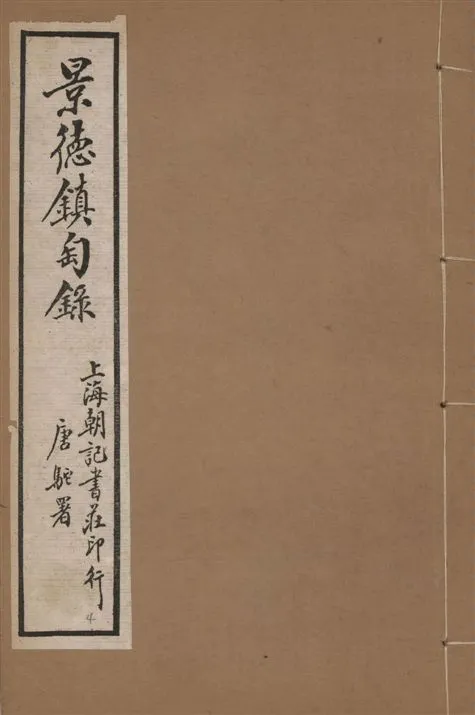 景徳鎮匋錄
上海朝記書莊印行
唐駝署
4